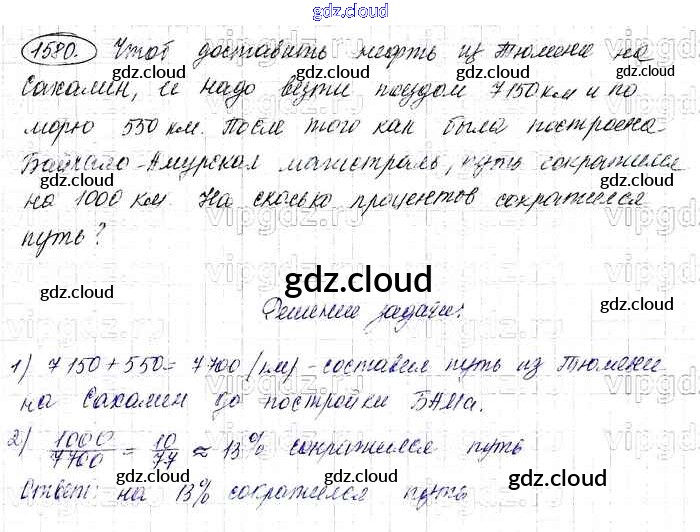 gdz.cloud
1580. Чтоб доставить нефть из Тюмени на
gdz.cloud gdz.cloud gdz.cloud
Сахалин, её надо везти поездом 7150 км и по
морю 550 км. После того как была построена
gdz.cloud gdz.cloud gdz.cloud
Байкало-Амурская магистраль, путь сократился
на 1000 км. На сколько процентов сократился
gdz.cloud gdz.cloud gdz.cloud
путь?
gdz.cloud gdz.cloud gdz.cloud
Решение задачи:
1) 7150+550=7700 (км) - составил путь из Тюмени
gdz.cloud gdz.cloud gdz.cloud
на Сахалин до постройки БАМа.
2) 1000/7700 = 10/77 ≈ 13% сократился путь
gdz.cloud gdz.cloud gdz.cloud
Ответ: на 13% сократился путь
gdz.cloud